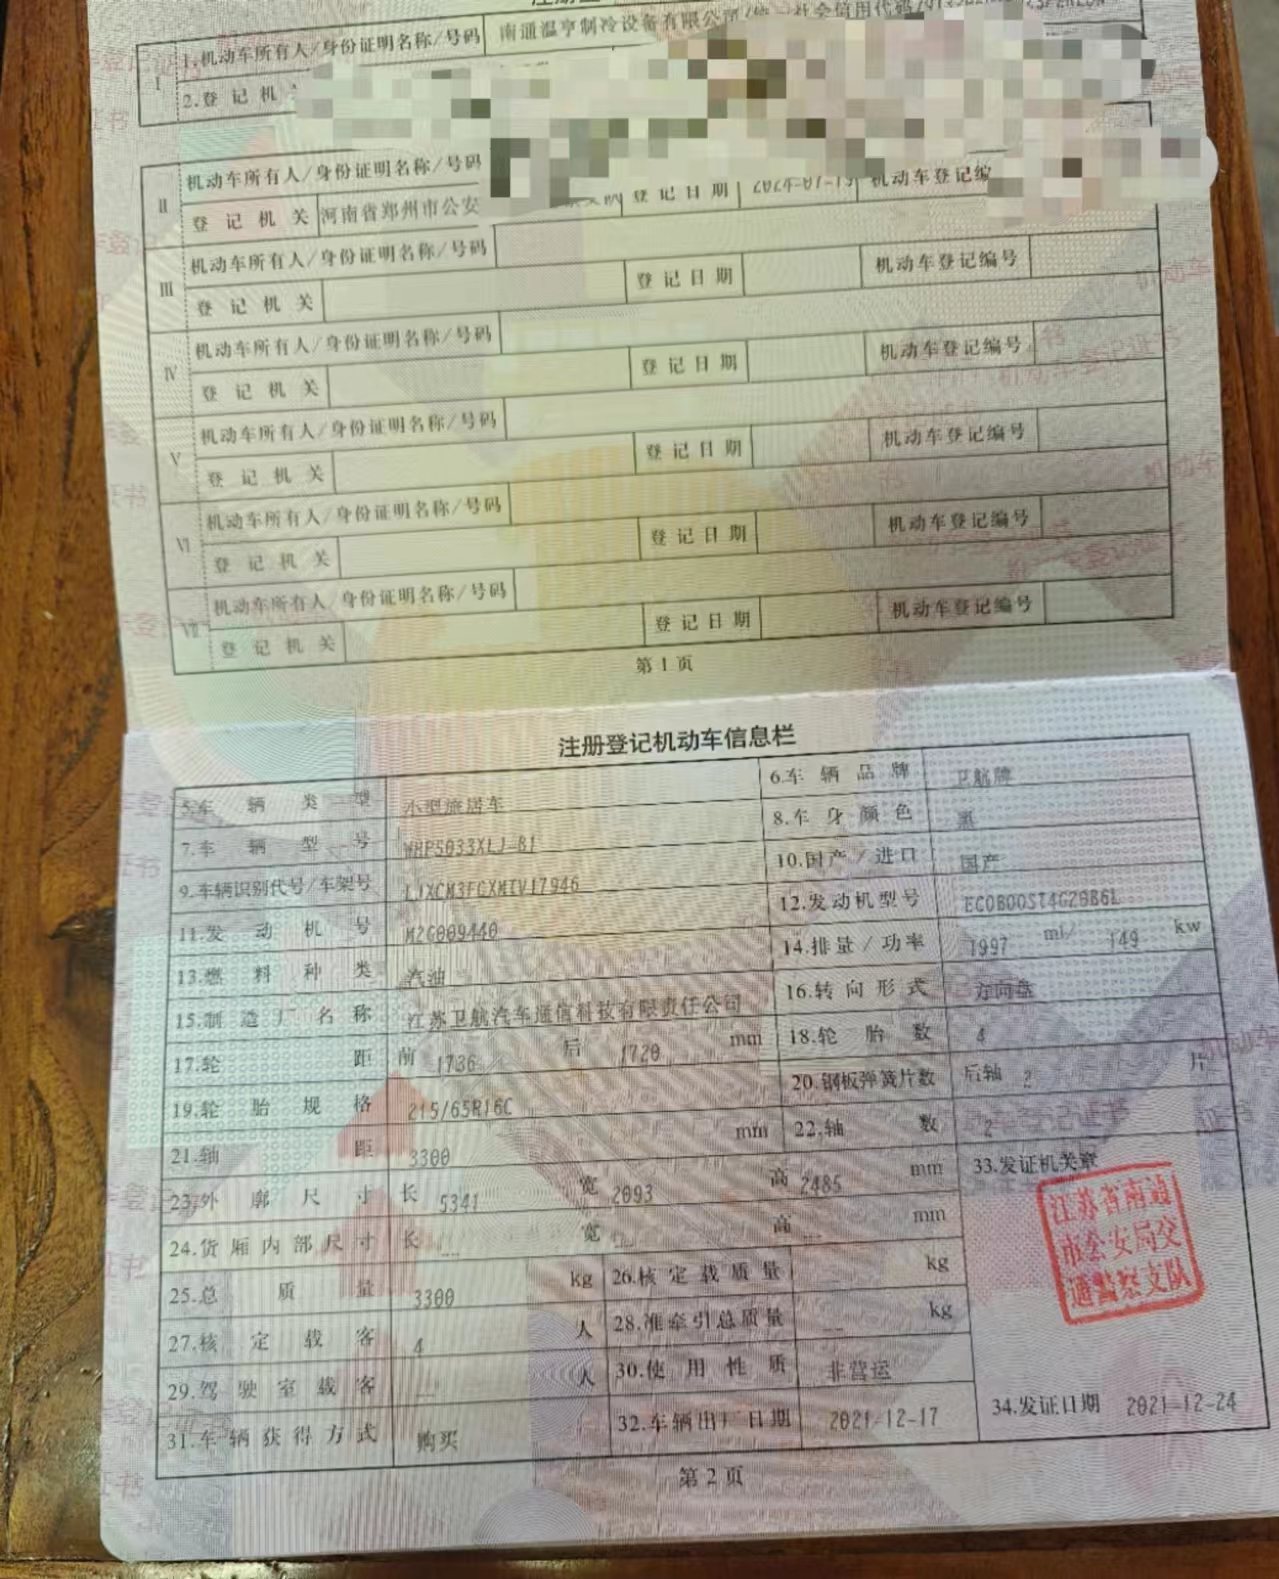 I 1.机动车所有人/身份证明名称/号码 南通温亨制冷设备有限公司/统一社会信用代码/
2.登 记 机
II 机动车所有人/身份证明名称/号码
登 记 机 关 河南省郑州市公安 登 记 日 期 2024-07-15 机动车登记编
III 机动车所有人/身份证明名称/号码
登 记 机 关 登 记 日 期 机动车登记编号
IV 机动车所有人/身份证明名称/号码
登 记 机 关 登 记 日 期 机动车登记编号
V 机动车所有人/身份证明名称/号码
登 记 机 关 登 记 日 期 机动车登记编号
VI 机动车所有人/身份证明名称/号码
登 记 机 关 登 记 日 期 机动车登记编号
VII 机动车所有人/身份证明名称/号码
登 记 机 关 登 记 日 期 机动车登记编号
第 1 页
注册登记机动车信息栏
5.车 辆 类 型 小型旅居车 6.车 辆 品 牌 卫航牌
7.车 辆 型 号 WHP5033XLJ-B1 8.车 身 颜 色 黑
9.车辆识别代号/车架号 10.国产/进口 国产
11.发 动 机 号 M2G009440 12.发动机型号 ECOBOOST4G20B6L
13.燃 料 种 类 汽油 14.排量/功率 1997 ml/ 149 kw
15.制 造 厂 名 称 江苏卫航汽车通信科技有限责任公司 16.转 向 形 式 方向盘
17.轮 距 前 1736 后 1720 mm 18.轮 胎 数 4
19.轮 胎 规 格 215/65R16C 20.钢板弹簧片数 后轴 2 片
21.轴 距 3300 mm 22.轴 数 2
23.外 廓 尺 寸 长 5341 宽 2093 高 2485 mm 33.发证机关章
24.货厢内部尺寸 长 -- 宽 -- 高 -- mm
江苏省南通
市公安局交
通警察支队
25.总 质 量 3300 kg 26.核定载质量 -- kg
27.核 定 载 客 4 人 28.准牵引总质量 -- kg
29.驾 驶 室 载 客 -- 人 30.使 用 性 质 非营运
31.车辆获得方式 购买 32.车辆出厂日期 2021-12-17 34.发证日期 2021-12-24
第 2 页